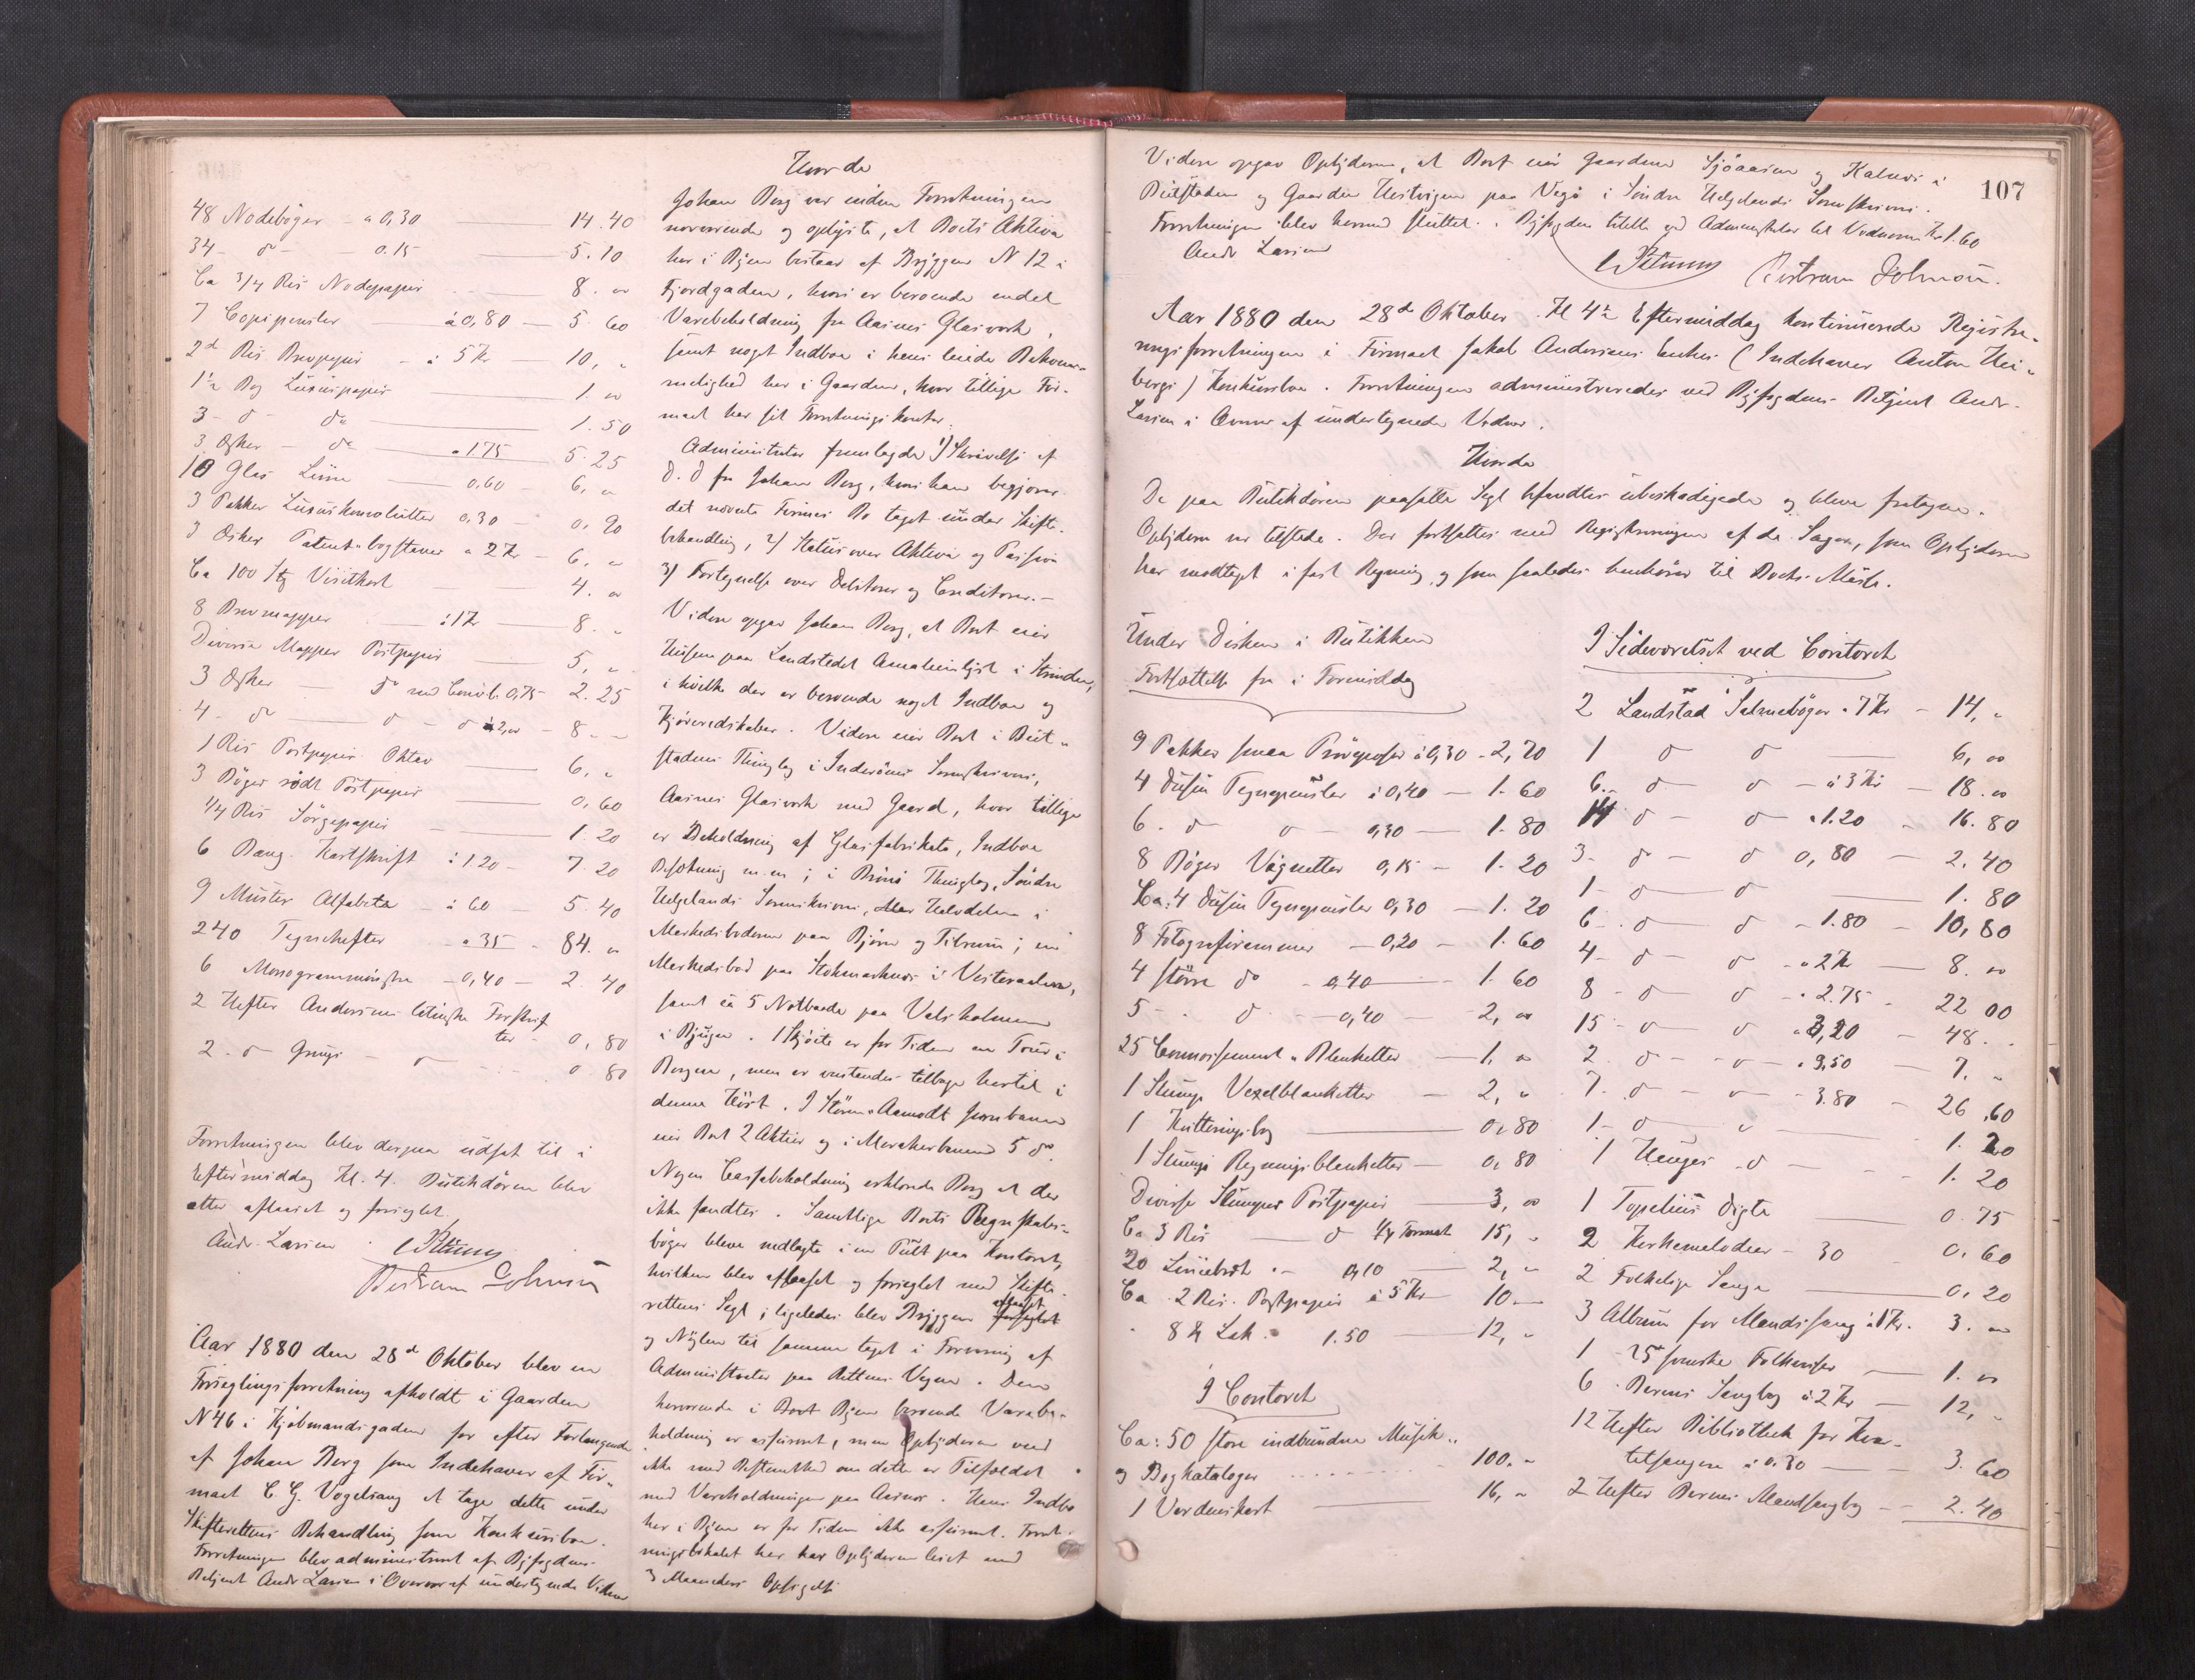 48 Nodebøger - a 0,30 14.40
34 - do - 0.15 5.10
Ca 3/4 Ris Nodepapir 8. "
7 Copipensler à 0,80 - 5.60
2 Ris Brevpapir - à 5 Kr 10, "
1 1/2 Bog Luxuspapir 1. "
3 - do do 1.50
3 Æsker - do a 1.75 5.25
10 Glas Liim 0.60 - 6, "
3 Pakker Luxuskonvolutter 0,30 - 0.90
3 Æsker Patent-bogstaver a 2 Kr - 6. "
Ca 100 Stk Visitkort 4. "
8 Brevmapper à 1 Kr 8. "
Diverse Mapper Postpapir 5, "
3 Æsker - do med Convol. 0,75 2.25
4 - do - do - do à 2,00 - 8. "
1 Ris Postpapir Oktav 6. "
3 Bøger rødt Postpapir 0.60
1/4 Ris Sørgepapir 1.20
6 Bang. Kartskrift à 1.20 - 7.20
9 Mønster Alfabeter - à 60 5.40
240 Tegnehefter - a 35 - 84. "
6 Monogrammønstre - 0,40 - 2.40
2 Hefter Andersens latinske Forskrif
ter - 0,80
2 - do - do - 0.80
Forretningen blev derpaa udsat til i
Eftermiddag Kl. 4. Butikdøren blev
atter aflaaset og forseglet.
Andr. Larsen
Bertram Johnsen
Aar 1880 den 28de Oktober blev en
Forseglingsforretning afholdt i Gaarden
N 46 i Kjøbmandsgaden for efter Forlangende
af Johan Berg som Indehaver af Fir-
maet C. G. Vogelsang at tage dette under
Skifterettens Behandling som Konkursbo.
Forretningen blev administreret af Byfogdens
Betjent Andr Larsen i Overvær af undertegnede Vidner
Hvorda
Johan Berg var under Forretningen
nærværende og oplyste, at Boets Aktiva
her i Byen bestaar af Bryggen N 12 i
Fjordgaden, hvori er beroende endel
Varebeholdning fra Aasnes Glasværk,
samt noget Indbo i hans leiede Bekvem-
melighed her i Gaarden, hvor tillige Fir-
maet har sit Forretningskontor.
Administrator fremlagde 1) Skrivelse af
D. D fra Johan Berg, hvori han begjærer
det nævnte Firmas Bo taget under Skifte-
behandling, 2) Status over Aktiva og Passiva
3) Fortegnelse over Debitorer og Creditorer.-
Videre opgav Johan Berg, at Boet eier
Husene paa Landstedet Amalienlyst i Strinden,
i hvilke der er beroende noget Indbo og
Kjøreredskaber. Videre eier Boet i Beit-
stadens Thinglag i Inderøens Sorenskriveri,
Aasnes Glasværk med Gaard, hvor tillige
er Beholdning af Glasfabrikata, Indbo
Besætning m.m; i Brønø Thinglag, Søndre
Helgelands Sorenskriveri, Halvdelen i
Markedsboderne paa Bjørn og Tilrem; en
Markedsbod paa Stokmarknæs i Vesteraalen,
samt ca 5 Notbaade paa Valsholmen
i Bjugn. 1 Skjøite er for Tiden en Tour i
Bergen, men er ventendes tilbage hertil i
denne Høst. I Støren-Aamodt Jernbanen
eier Boet 2 Aktier og i Merakerbanen 5 do.
Nogen Cassabeholdning erklærede Berg at der
ikke fandtes. Samtlige Boets Regnskabs-
bøger bleve nedlagte i en Pult paa Kontoret,
hvilken blev aflaaset og forseglet med Skifte-
rettens Segl; ligeledes blev Bryggen forseglet aflaaset
og Nøglen til samme taget i Forvaring af
Administrator paa Rettens Vegne. Den
herværende i Boet Byen beroende Varebe-
holdning er assureret, men Opbyderen ved
ikke med Bestemthed om dette er Tilfældet
med Vareholdningen paa Aasnæs. Hans Indbo
her i Byen er for Tiden ikke assureret. Forret-
ningslokalet her har Opbyderen leiet med
3 Maaneders Opsigelse
107
Videre opgav Opbyderen, at Boet eier Gaardene Sjøaasen og Kalnæs i
Beitstaden og Gaarden Hestvigen paa Vegø i Søndre Helgelands Sorenskriveri.
Forretningen blev hermed sluttet. Byfogden tilstiller ved Administrator til Vidnerne Kr 1.60
Andr Larsen
Bertram Johnsen.
Aar 1880 den 28de Oktober Kl 4 1/2 Eftermiddag kontinuerede Registre-
ringsforretningen i Firmaet Jakob Andersens Enkes (Indehaver Anton Hei-
bergs) Konkursbo. Forretningen administreredes ved Byfogdens Betjent Andr.
Larsen i Overvær af undertegnede Vidner.
Hvorda
De paa Butikdøren paasatte Segl befandtes ubeskadigede og bleve fratagne.
Opbyderen var tilstede. Der fortsattes med Registreringen af de Sager, som Opbyderen
har modtaget i fast Regning, og som saaledes henhører til Boets Masse.
Under Disken i Butikken
Fortsættelse fra i Formiddag
9 Pakker smaa Prøveposer à 0,30 - 2,70
4 Dusin Tegnepensler à 0,40 - 1.60
6 - do do - 0,30 - 1.80
8 Bøger Vignetter 0,15 - 1.20
Ca. 4 Dusin Tegnepensler 0,30 - 1.20
8 Fotografirammer - 0,20 - 1.60
4 større do - 0,40 1.60
5 - do - 0,40 - 2, "
25 Connossement-Blanketter - 1, "
1 Slump Vexelblanketter - 2, "
1 Kutteringsbog 0,80
1 Slump Regningsblanketter - 0,80
Diverse Slumper Postpapir 3, "
Ca 3 Ris do 1/4 Format 15, "
20 Liniebræt - 0,10 2, "
Ca 2 Ris Postpapir à 5 Kr 10.-
" 8 ℔ Lak - 1.50 12, "
I Contoret
Ca: 50 store indbundne Musik-
og Bogkataloger 100. "
1 Verdenskart 16, "
I Sideværelset ved Contoret
2 Landstad Salmebøger a 7 Kr - 14, "
1 do do 6, "
6 - do do - à 3 Kr - 18. "
14 do - do a 1.20 - 16.80
3 - do - do 0,80 - 2.40
1 - do - do 1.80
6 - do do - 1.80 - 10,80
4 - do - do - a 2 Kr - 8. "
8 - do do - a 2.75 - 22 00
15 - do do a 3,20 - 48. "
2 - do - do - a 3,50 - 7. "
7 - do - do - 3.80 - 26.60
1 - do do 1.20
1 Hauges do - 1.20
1 Topelius Digte 0.75
2 Kirkemelodier - 30 - 0.60
2 Folkelige Sange 0.20
3 Album for Mandssang à 1 Kr. 3. "
1 25 svenske Folkeviser 1. "
6 Berens Sangbog à 2 Kr - 12, "
12 Hefter Bibliothek for Kvar-
tetsangere à 0.30 3.60
2 Hefter Berens Mandssangbog - 2.40